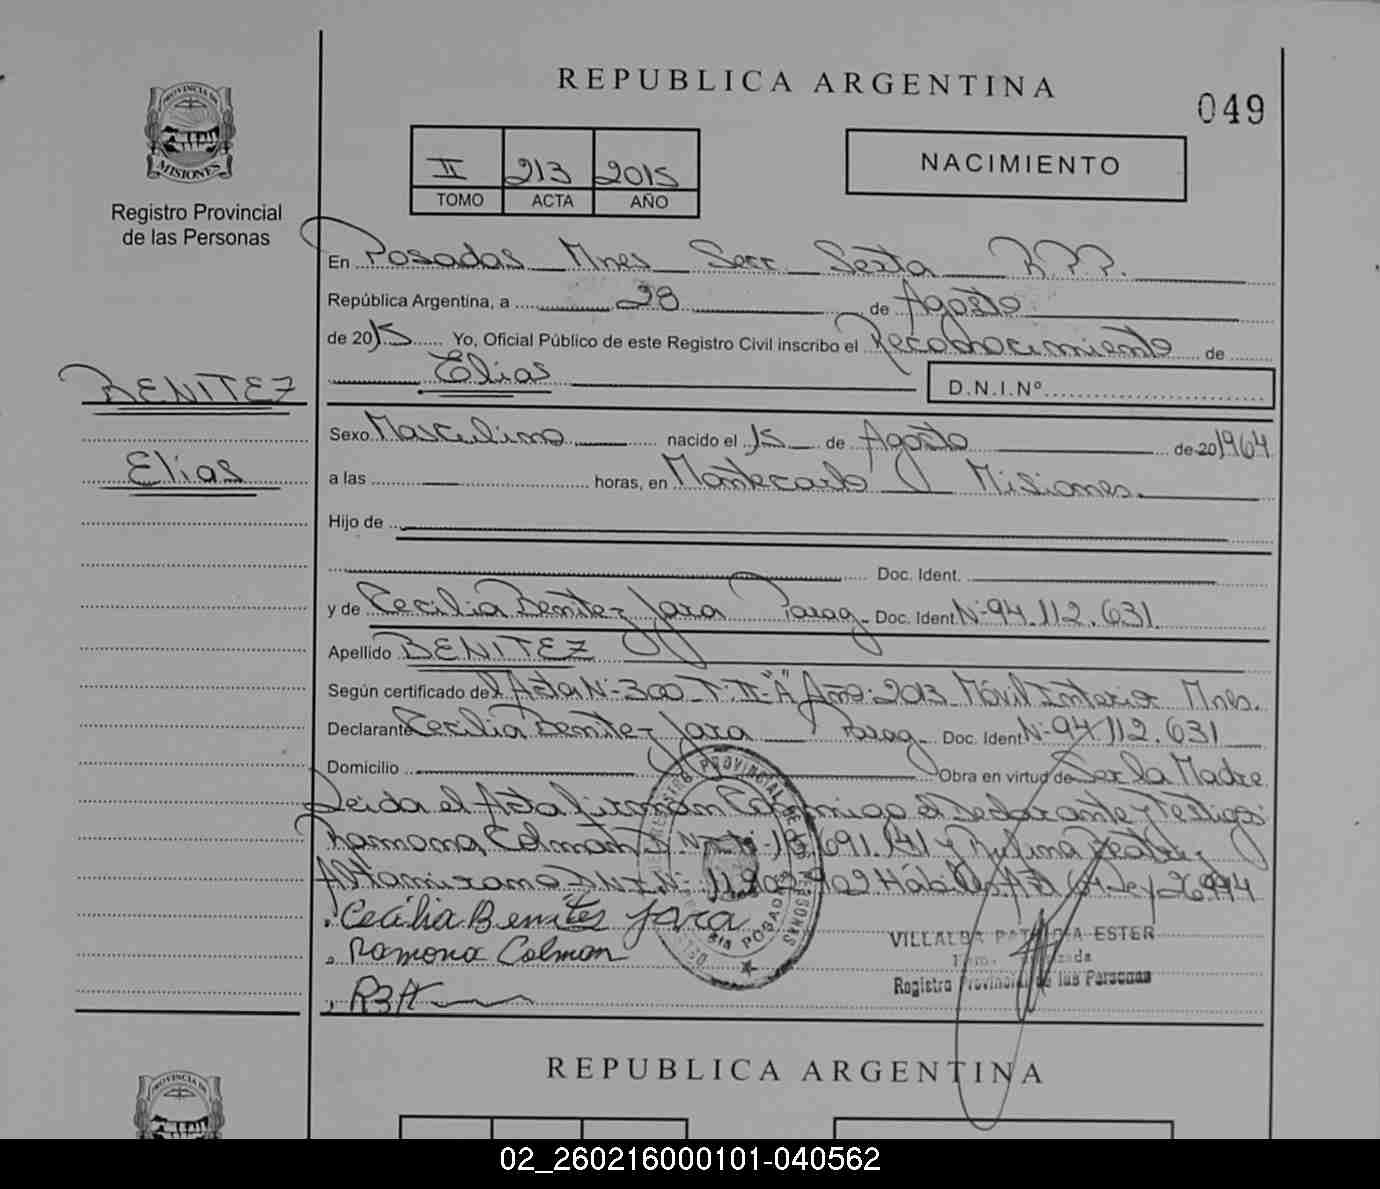 REPUBLICA ARGENTINA
049
PROVINCIA DE
MISIONES
Registro Provincial
de las Personas
II 213 2015
TOMO ACTA AÑO
NACIMIENTO
En Posadas Mnes Secc. Sexta R.P.P.
República Argentina, a 28 de Agosto
de 2015 Yo, Oficial Público de este Registro Civil inscribo el Reconocimiento de
Elias
D.N.I.Nº
BENITEZ
Elias
Sexo Masculino nacido el 15 de Agosto de 20 1964
a las horas, en Montecarlo Misiones.
Hijo de
Doc. Ident.
y de Cecilia Benitez Jara Parag. Doc. Ident. Nº 94.112.631
Apellido BENITEZ
Según certificado del Acta Nº 300 T: II-"A" Año: 2013 Móvil Interior Mnes.
Declarante Cecilia Benitez Jara Parag. Doc. Ident Nº 94.112.631
Domicilio Obra en virtud de Ser la Madre
Leida el Acta firman Conmigo el Declarante y Testigos
Ramona Colman D.N.I. Nº 691.141 y Rufina Beatriz
Altamirano D.N.I. Nº Hábiles Ley 26994
Cecilia Benites Jara
Ramona Colman
RBA
REGISTRO PROVINCIAL DE LAS PERSONAS
POSADAS
VILLALBA ESTER
Registro Provincial de las Personas
REPUBLICA ARGENTINA
PROVINCIA DE
02_260216000101-040562